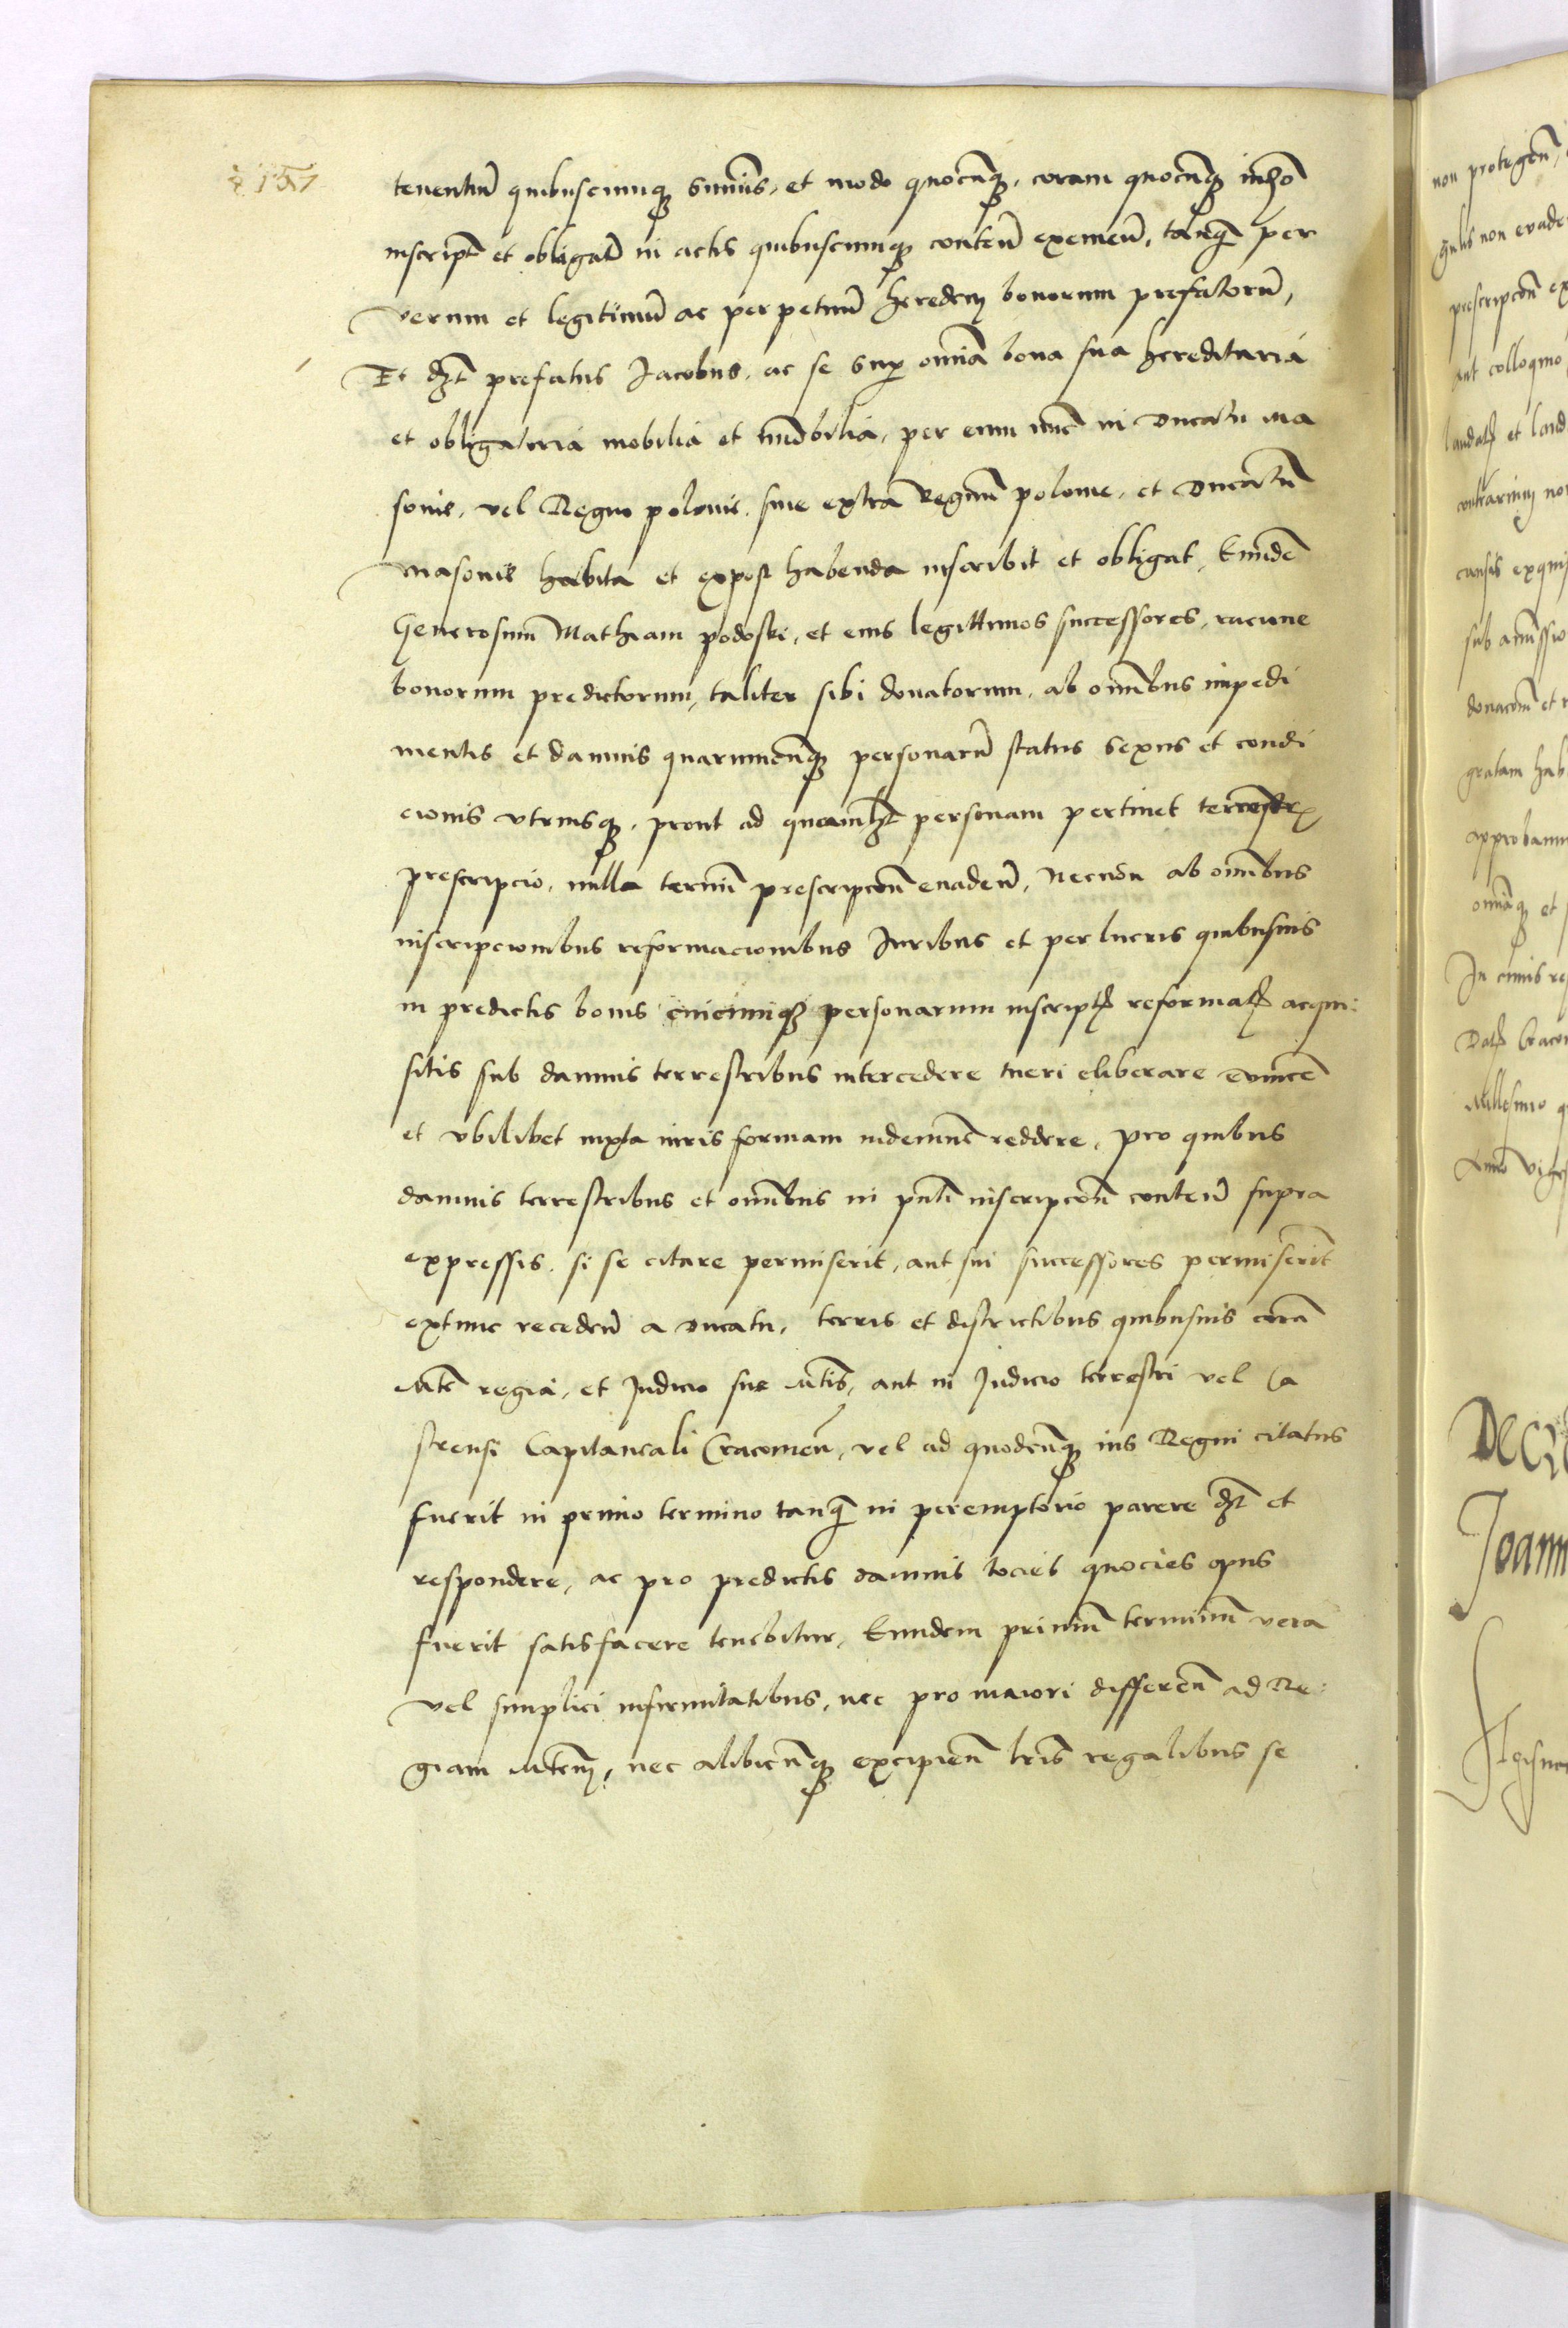 tenentur quibuscumqꝫ summis, et modo quocunqꝫ, coram quocunqꝫ iuditio
inscript et obligat in actis quibuscumqꝫ conten exemen, tanq per
verum et legitimu ac perpetuu heredem bonorum prefatoru,
Et debet prefatus Jacobus, ac se sup omnia bona sua hereditaria
et obligatoria mobilia et imobilia, per eum nunc in ducatu ma
sovie, vel Regno polonie, sive extra regnum polonie, et ducatu
masovie habita et expost habenda inscribit et obligat, Eunde
Generosum Mathiam podoski, et eius legittimos successores, racione
bonorum predictorum, taliter sibi donatorum, ab omnibus impedi
mentis et damnis quarumcunqꝫ personaru status sexus et condi
cionis utriusqꝫ, prout ad quamlibet personam pertinet terrestr
prescripcio, nulla termi prescripcon evaden, necnon ab omnibus
inscripcionibus reformacionibus Juribus et perlucris quibusvis
in predictis bonis cuicumqꝫ personarum inscript reformat acqui
sitis sub damnis terrestribus intercedere tueri eliberare evincere
et ubilibet iuxta iuris formam indemnes reddere, pro quibus
damnis terrestribus et omnibus in pnti inscripcon conten supra
expressis, si se citare permiserit, aut sui successores permiserit
extunc receden a ducatu, terris et districtibus quibusvis coram
Mte regia, et Judicio sue Mtis, aut in Judicio terrestri vel Ca
strensi Capitaneali Cracovien, vel ad quodcunqꝫ ius Regni citatus
fuerit in primo termino tanq in peremptorio parere debet et
respondere, ac pro predictis damnis tocies quocies opus
fuerit satisfacere tenebitur, Eundem primum terminum vera
vel simplici infirmitatibus, nec pro maiori differen ad Re
giam Mtem, nec alibicunqꝫ excipien lris regalibus se
non protegen,
prescripcon ex
aut colloquio
laudat et laud
contrarium non
causis exquis
sub amissio
donacom et r
gratam hab
approbamus
omniaqꝫ et
In cuius rei
Dat Craco
Millesimo q
Joann